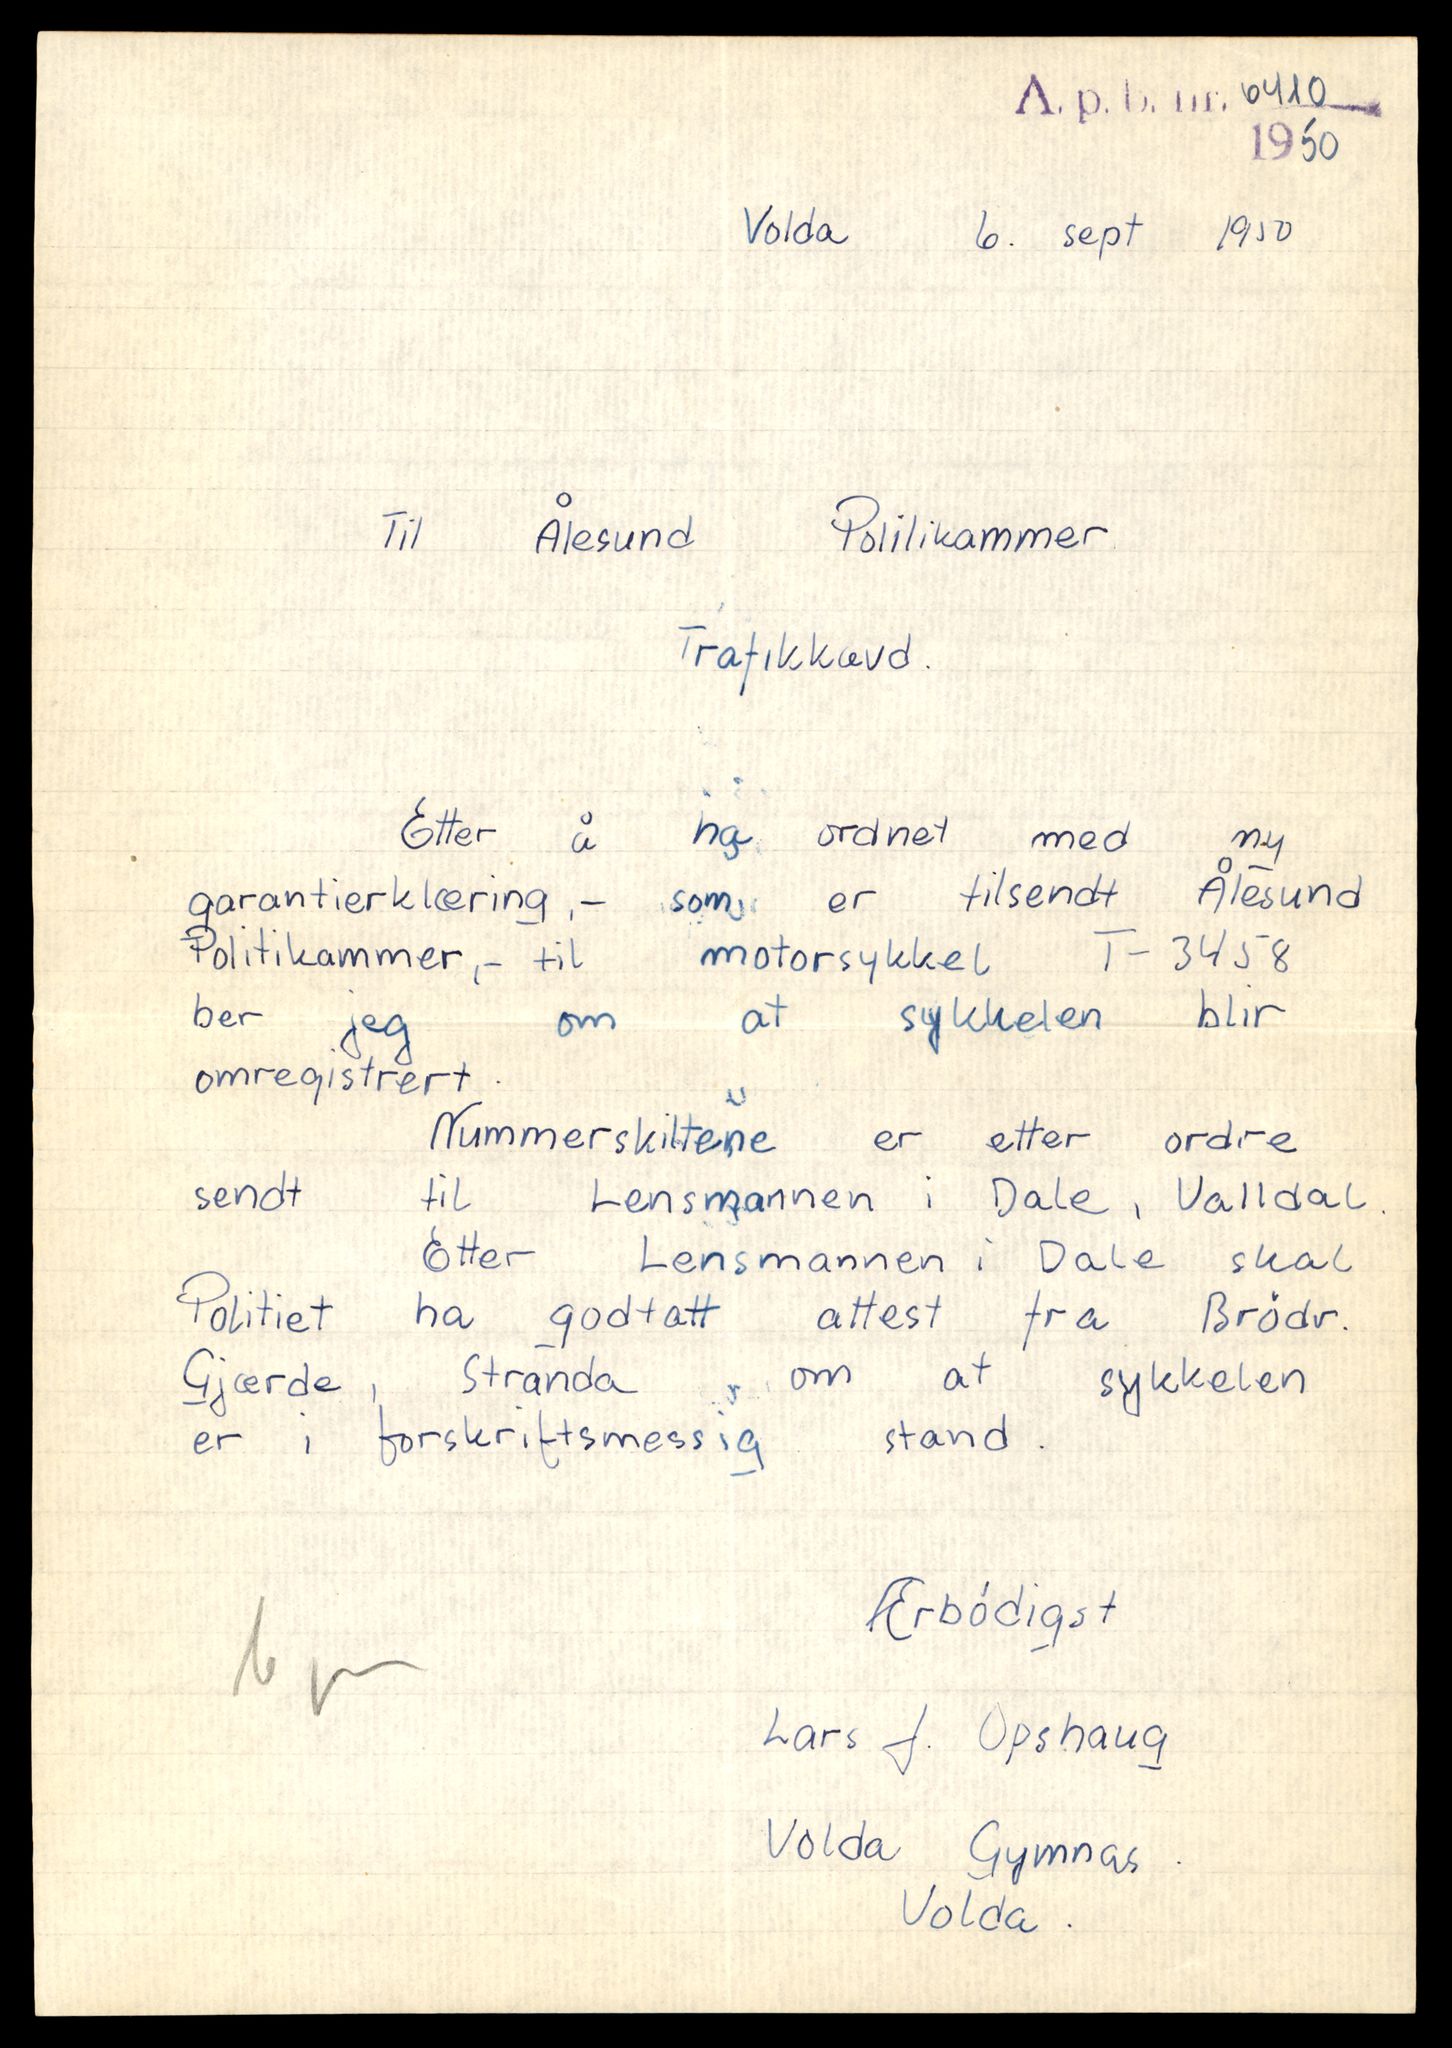 A. p. b. nr. 6410
1950
Volda 6. sept 1950
Til Ålesund Politikammer
Trafikkavd.
Etter å ha ordnet med ny
garantierklæring,- som er tilsendt Ålesund
Politikammer,- til motorsykkel T-3458
ber jeg om at sykkelen blir
omregistrert.
Nummerskiltene er etter ordre
sendt til Lensmannen i Dale, Valldal.
Etter Lensmannen i Dale skal
Politiet ha godtatt attest fra Brödr.
Gjærde, Stranda om at sykkelen
er i forskriftsmessig stand.
Ærbödigst
Lars J. Opshaug
Volda Gymnas.
Volda.